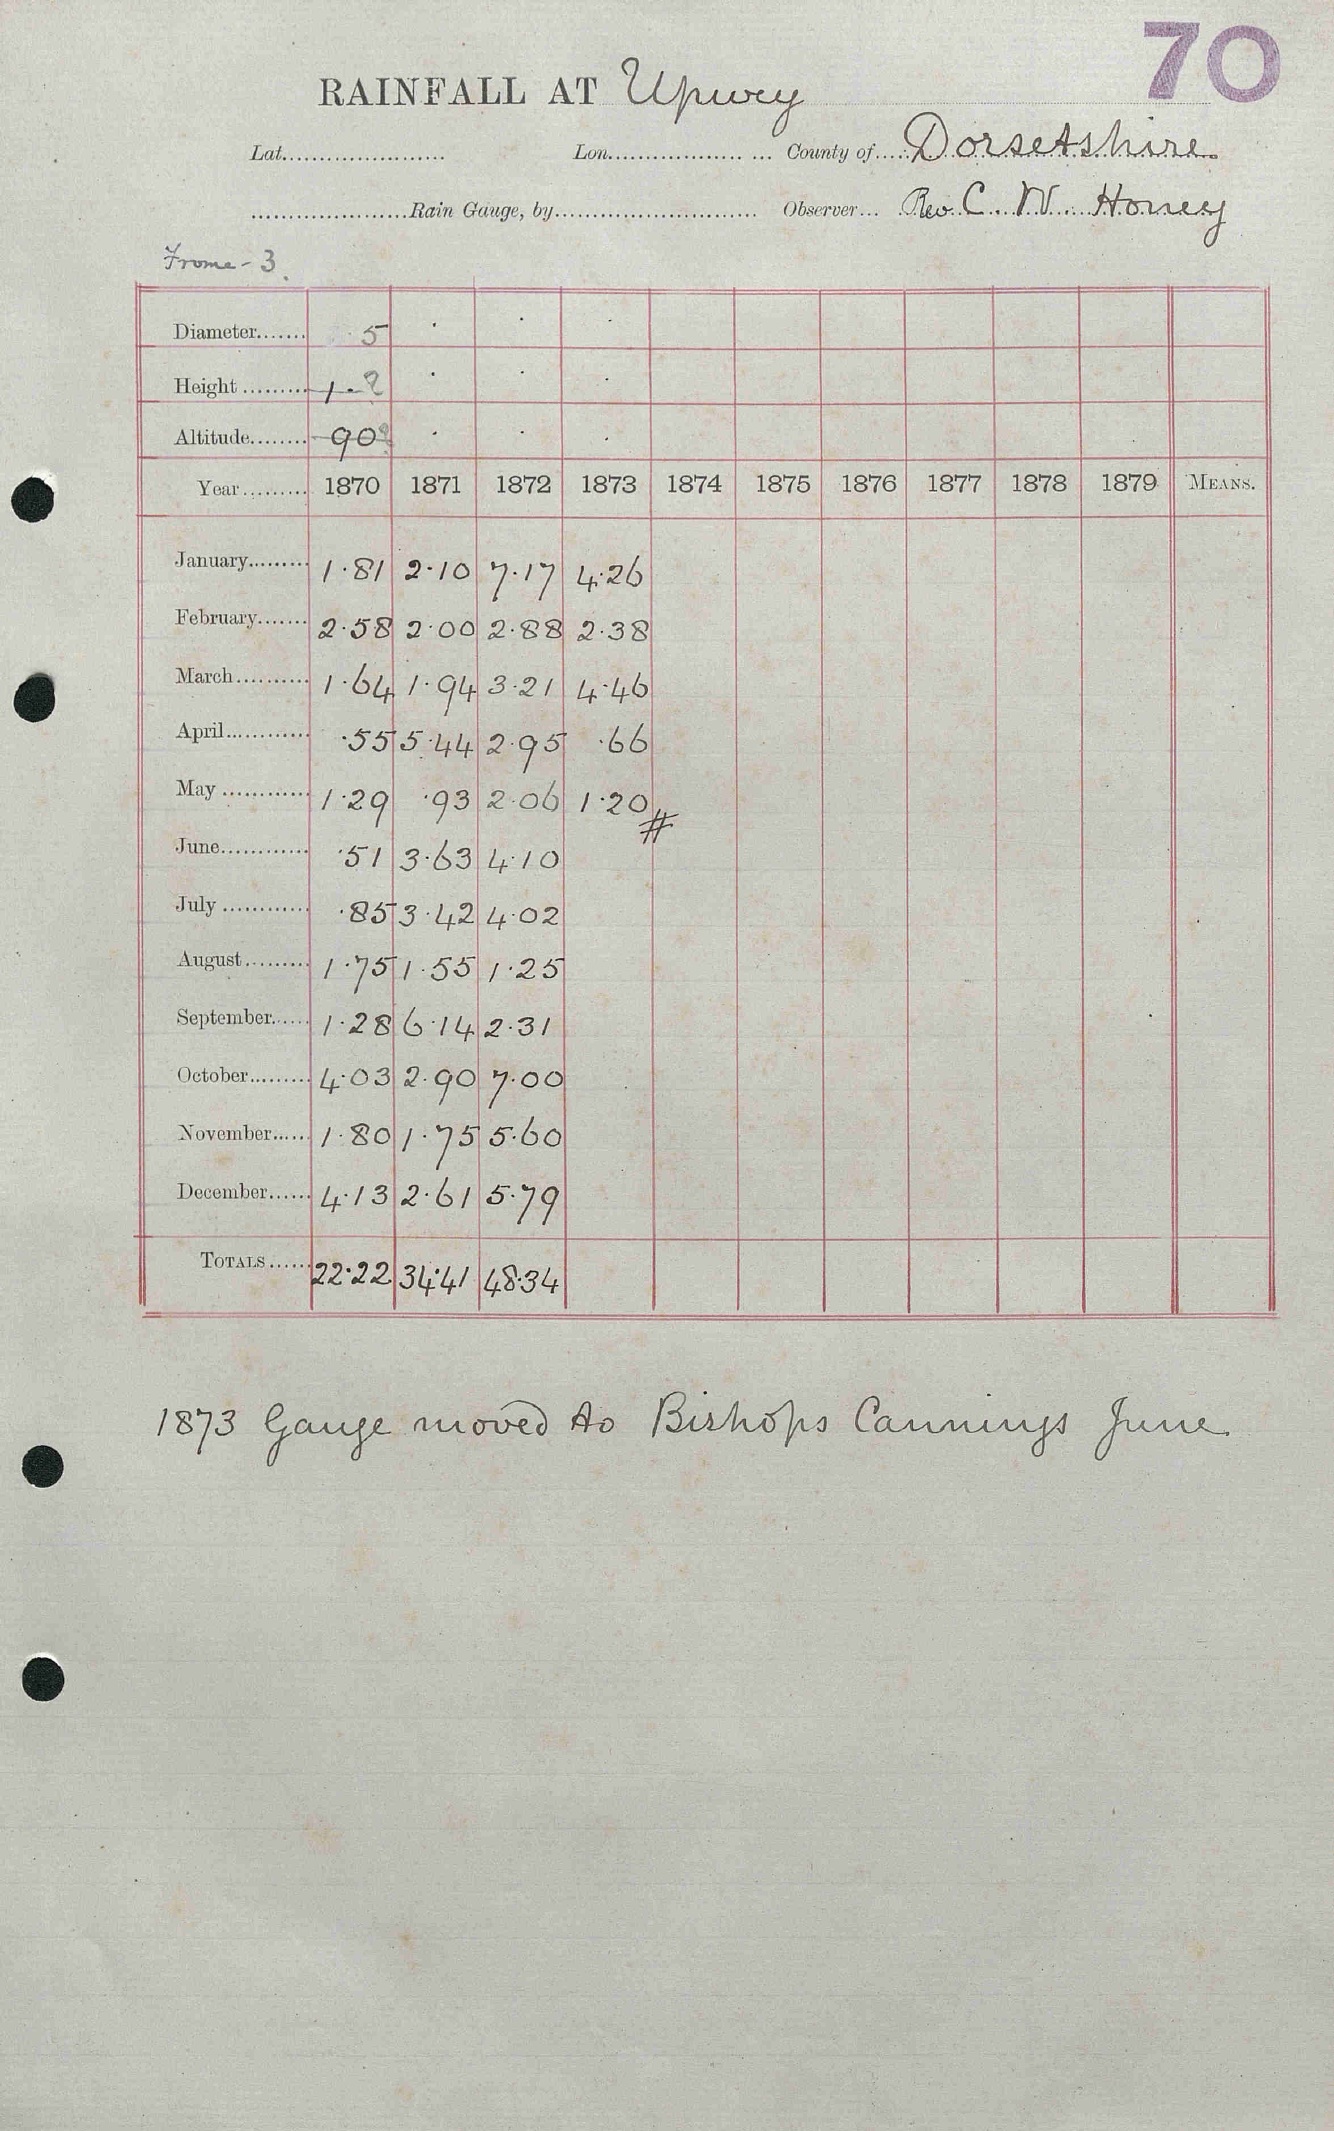 70
RAINFALL AT Upwey
Lat...................... Lon.................. ... County of..... Dorsetshire.
.....................Rain Gauge, by........................... Observer... Rev. C. W. Honey
Frome - 3.
Diameter....... 5 . . .
Height ......... 1.? . . .
Altitude........ 90? . . .
Year......... 1870 1871 1872 1873 1874 1875 1876 1877 1878 1879 MEANS.
January......... 1.81 2.10 7.17 4.26
February....... 2.58 2.00 2.88 2.38
March.......... 1.64 1.94 3.21 4.46
April............ .55 5.44 2.95 .66
May ............ 1.29 .93 2.06 1.20 #
June............ .51 3.63 4.10
July ............ .85 3.42 4.02
August......... 1.75 1.55 1.25
September...... 1.28 6.14 2.31
October......... 4.03 2.90 7.00
November...... 1.80 1.75 5.60
December...... 4.13 2.61 5.79
TOTALS...... 22.22 34.41 48.34
1873 Gauge moved to Bishops Cannings June.